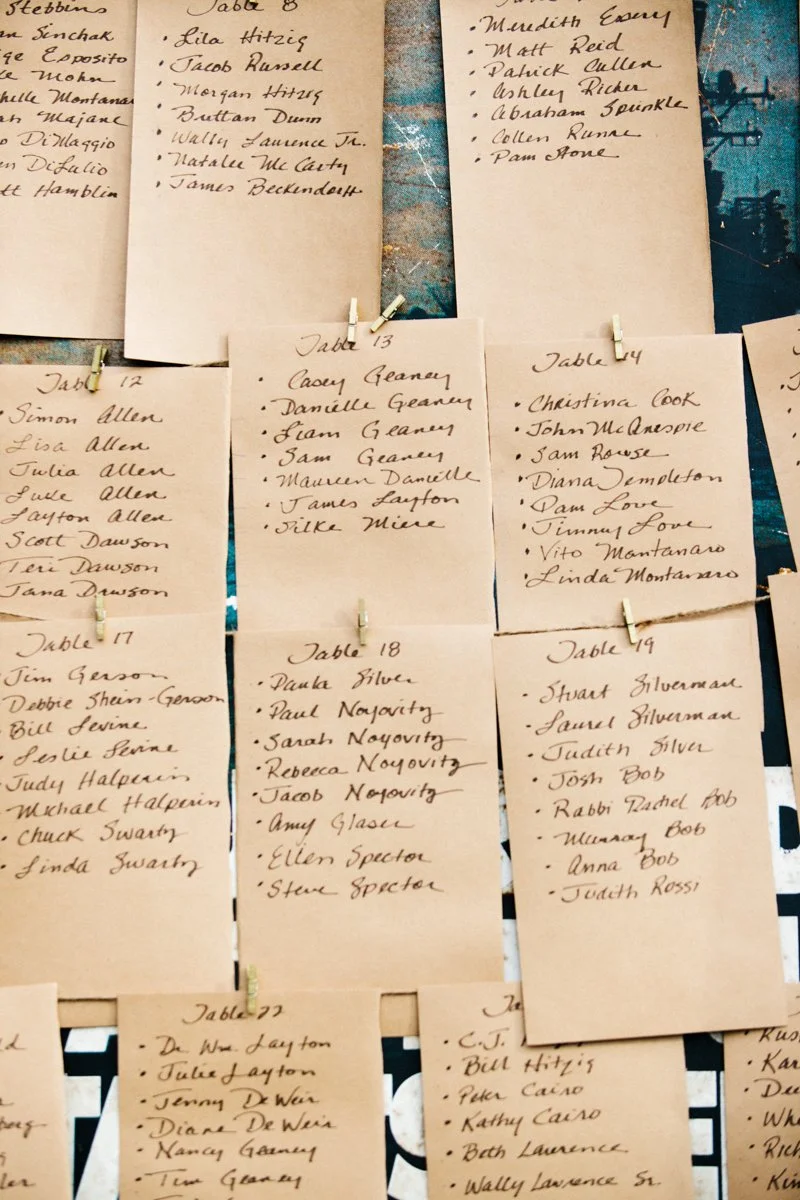 Stebbins
Sinchak
Esposito
Mohn
Montana
Majane
DiMaggio
DiLulio
Hamblin
Table 8
• Lila Hitzig
• Jacob Russell
• Morgan Hitzig
• Brittan Dunn
• Wally Laurence Jr.
• Natalie McCarty
• James Beckendorff
• Meredith Essery
• Matt Reid
• Patrick Cullen
• Ashley Richer
• Abraham Sprinkle
• Collen
• Pam Stone
Table 12
Simon Allen
Lisa Allen
Julia Allen
Luke Allen
Layton Allen
Scott Dawson
Teri Dawson
Jana Dawson
Table 13
• Casey Geaney
• Danielle Geaney
• Liam Geaney
• Sam Geaney
• Maureen Danielle
• James Layton
• Silke Miere
Table 14
• Christina Cook
• John McAnespie
• Sam Rowse
• Diana Templeton
• Pam Love
• Jimmy Love
• Vito Montanaro
• Linda Montanaro
Table 17
Jim Gerson
Debbie Shein-Gerson
Bill Levine
• Leslie Levine
Judy Halperin
• Michael Halperin
• Chuck Swartz
• Linda Swartz
Table 18
• Paula Silver
• Paul Noyovitz
• Sarah Noyovitz
• Rebecca Noyovitz
• Jacob Noyovitz
• Amy Glaser
• Ellen Spector
• Steve Spector
Table 19
• Stuart Silverman
• Laurel Silverman
• Judith Silver
• Josh Bob
• Rabbi Rachel Bob
• Murray Bob
• Anna Bob
• Judith Rossi
Table 22
• Dr. Wm Layton
• Julie Layton
• Jenny DeWeir
• Diane DeWeir
• Nancy Geaney
• Tim Geaney
• C.J.
• Bill Hitzig
• Peter Cairo
• Kathy Cairo
• Beth Laurence
• Wally Lawrence Sr.